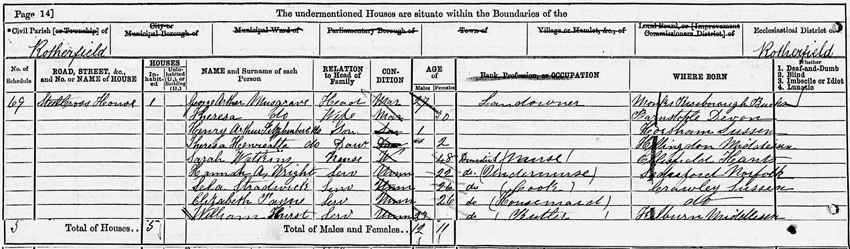 Page 14]
The undermentioned Houses are situate within the Boundaries of the
Civil Parish [or Township] of
City or Municipal Borough of
Municipal Ward of
Parliamentary Borough of
Town of
Village or Hamlet, &c., of
Local Board, or [Improvement Commissioners District] of
Ecclesiastical District of
Rotherfield
Rotherfield
No. of Schedule
ROAD, STREET, &c., and No. or NAME of HOUSE
HOUSES
Inhabited
Uninhabited (U.), or Building (B.)
NAME and Surname of each Person
RELATION to Head of Family
CONDITION
AGE of
Males
Females
Rank, Profession, or OCCUPATION
WHERE BORN
Whether
1. Deaf-and-Dumb
2. Blind
3. Imbecile or Idiot
4. Lunatic
69 Cross House 1 George Arthur Musgrave Head Mar 27 Landowner Monks Risborough Bucks
Theresa do Wife Mar 30 Barnstaple Devon
Henry Arthur Fitzherbert do Son 1 Horsham Sussex
Theresa Henrietta do Daur 2 Hillingdon Middlesex
Sarah Watkins Nurse W 48 Domestic (Nurse) Hants
Hannah A. Wright Serv Unm 22 do (Undernurse) Norfolk
Stradwick Serv Unm 26 do (Cook) Crawley Sussex
Elizabeth Payne Serv Unm 26 do (Housemaid) do
William Hurst Serv Unm 23 do (Butler) Kilburn Middlesex
5 Total of Houses.. 5 Total of Males and Females.. 12 11